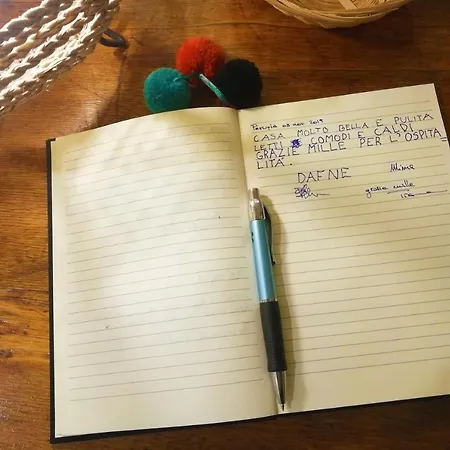 Perugia 03 nov. 2019
CASA MOLTO BELLA E PULITA
LETTI COMODI E CALDI
GRAZIE MILLE PER L'OSPITA=
LITÀ.
DAFNE
grazie mille